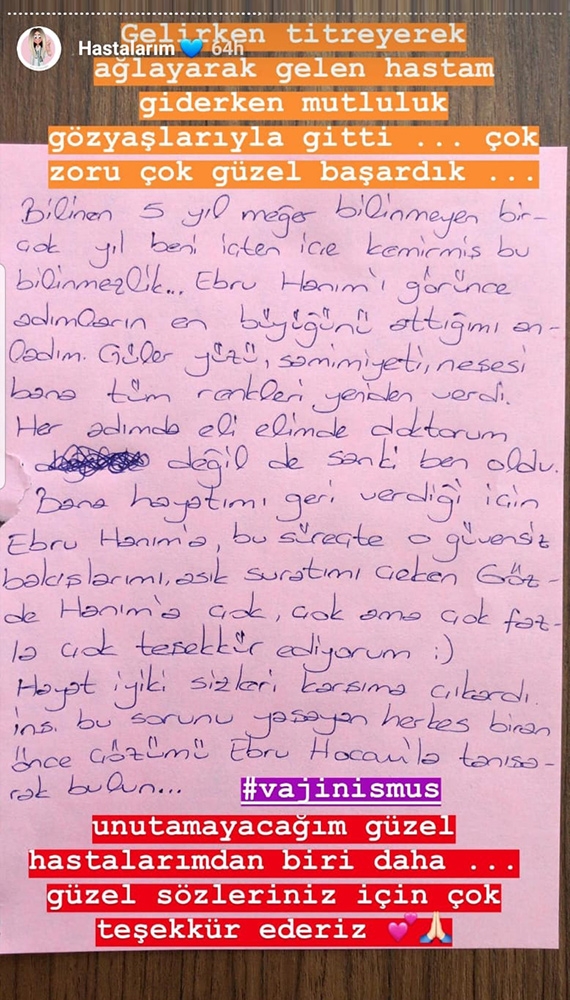 Hastalarım 💙 64h
Gelirken titreyerek
ağlayarak gelen hastam
giderken mutluluk
gözyaşlarıyla gitti ... çok
zoru çok güzel başardık ...
Bilinen 5 yıl meğer bilinmeyen bir-
çok yıl beni içten içe kemirmiş bu
bilinmezlik... Ebru Hanım'ı görünce
adımların en büyüğünü attığımı an-
ladım. Güler yüzü, samimiyeti, neşesi
bana tüm renkleri yeniden verdi.
Her adımda eli elimde doktorum
değil de sanki ben oldu.
Bana hayatımı geri verdiği için
Ebru Hanım'a, bu süreçte o güvensiz
bakışlarımı, asık suratımı çeken Göz-
de Hanım'a çok, çok ama çok faz-
la çok teşekkür ediyorum :)
Hayat iyiki sizleri karşıma çıkardı.
inş. bu sorunu yaşayan herkes biran
önce çözümü Ebru Hocam'la tanışa-
rak bulun...
#vajinismus
unutamayacağım güzel
hastalarımdan biri daha ...
güzel sözleriniz için çok
teşekkür ederiz 💕🙏🏻